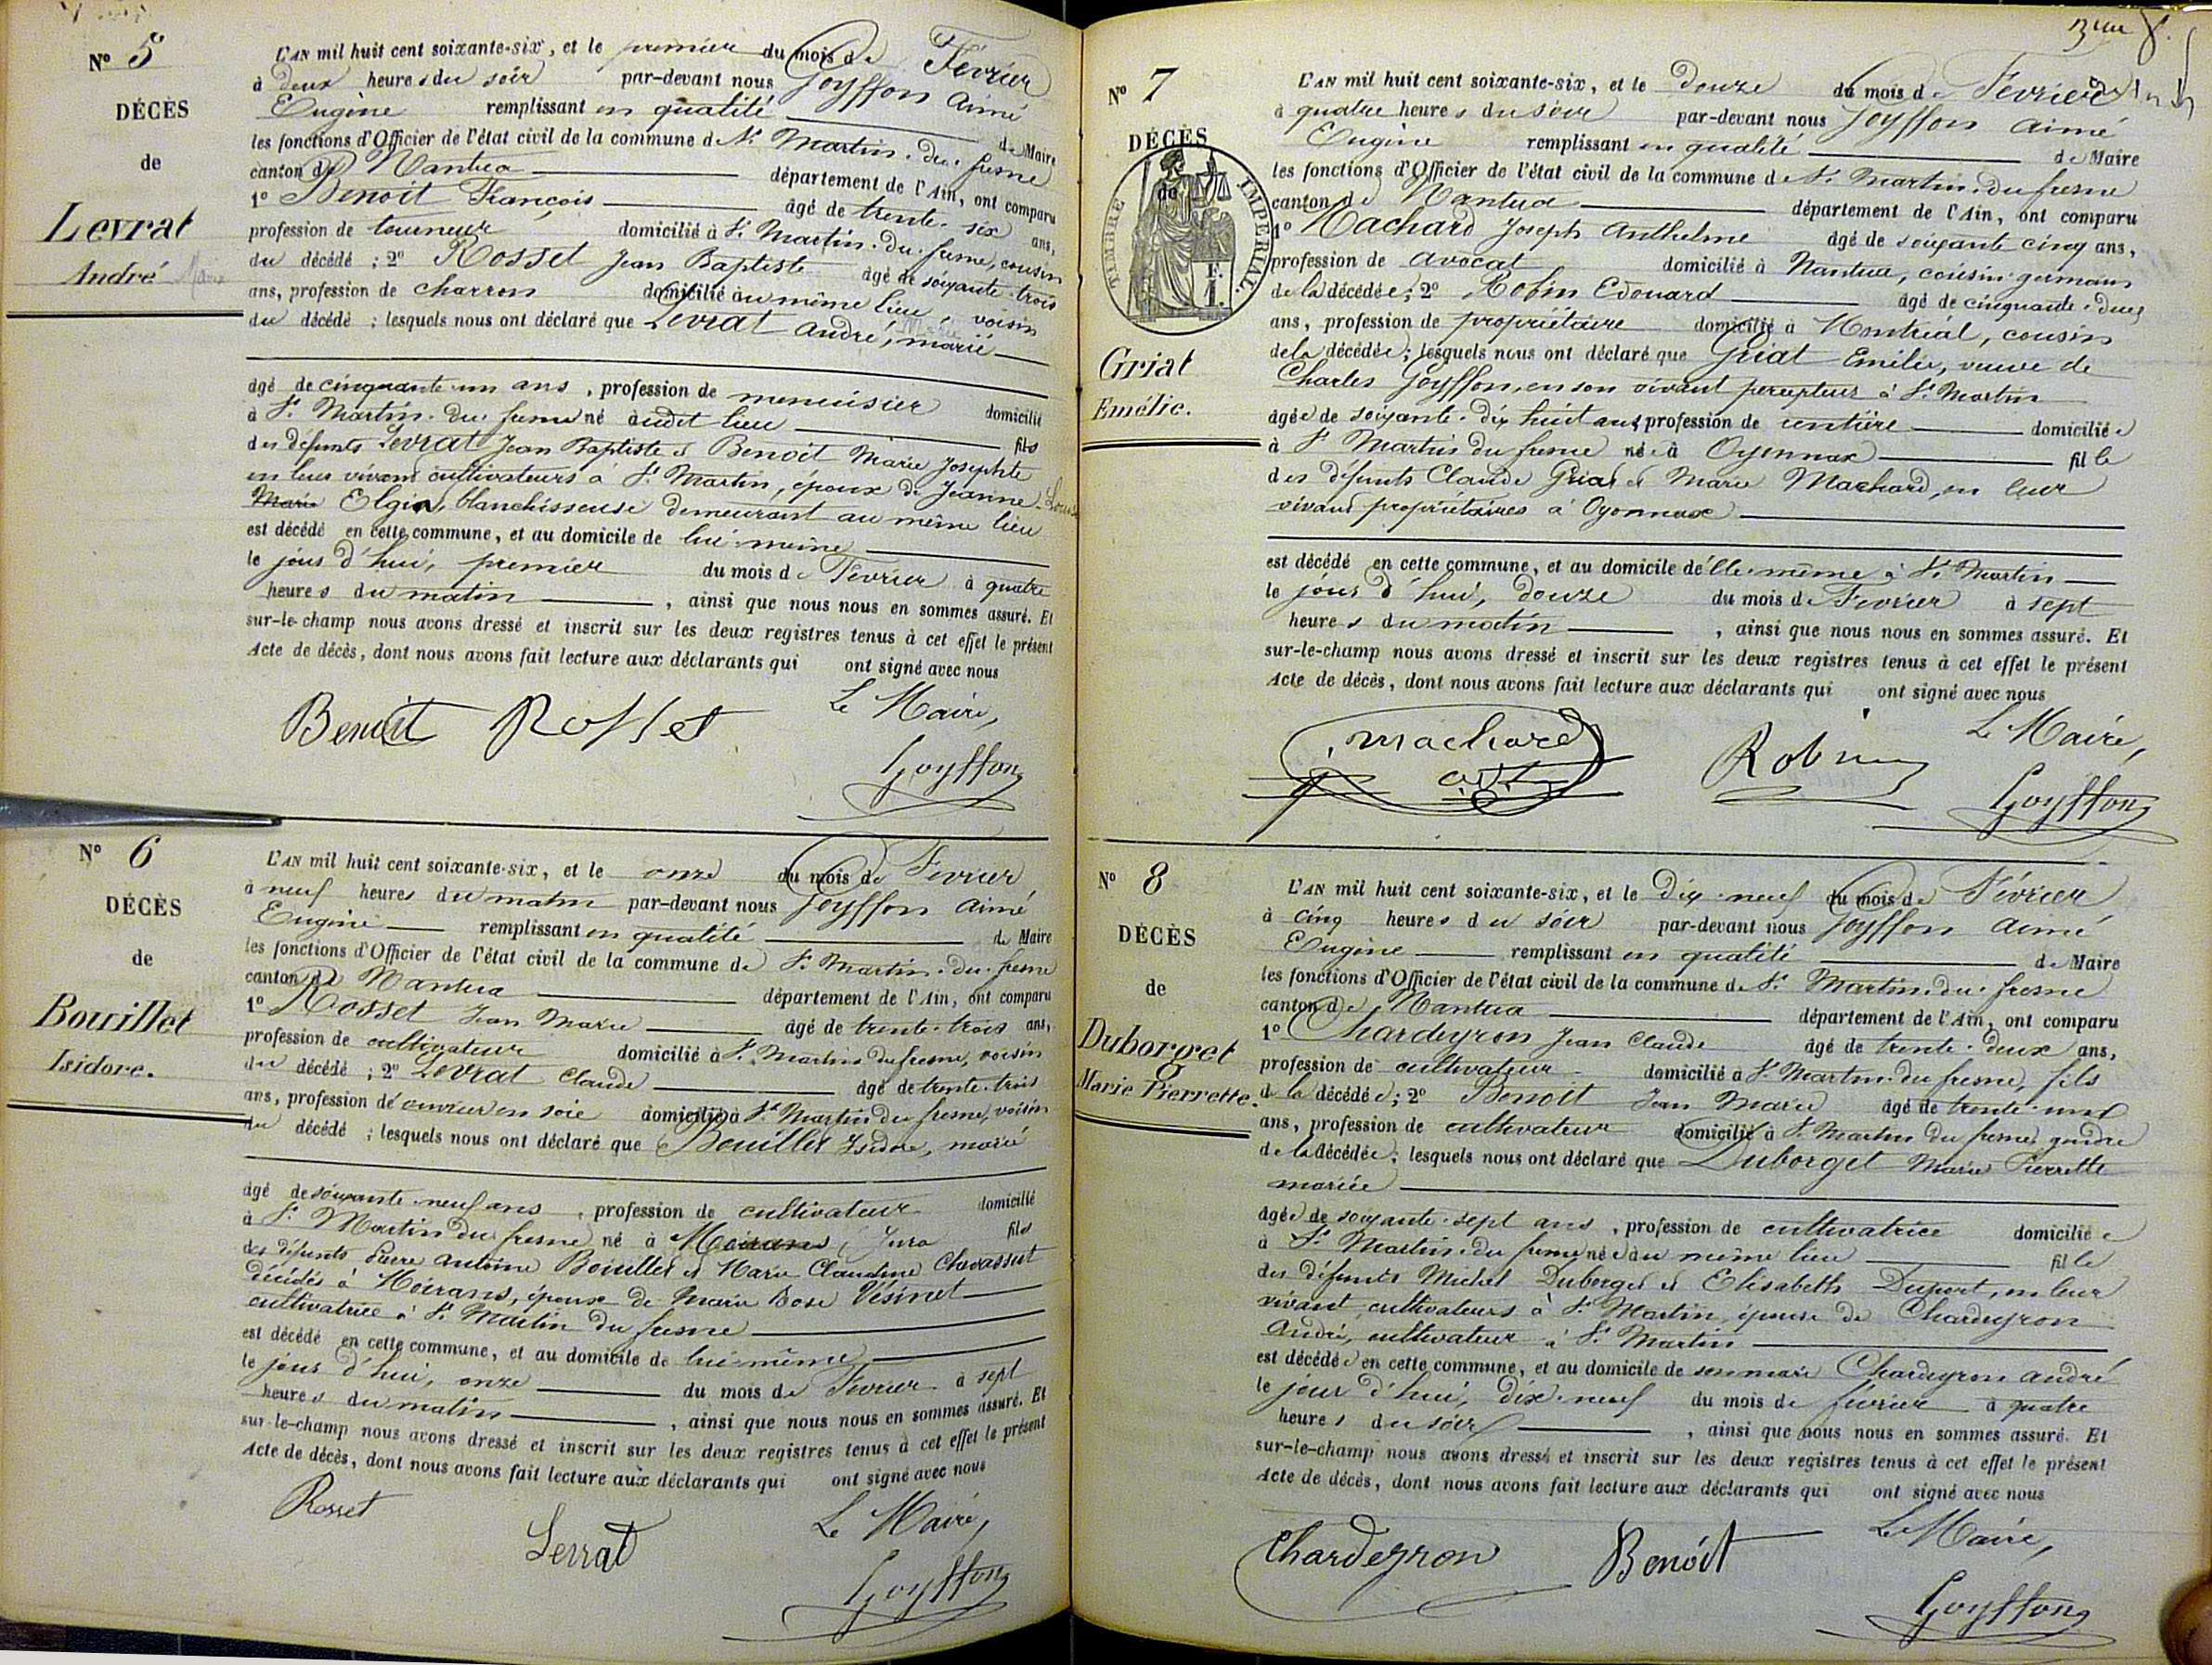 N° 5
DÉCÈS
de
Levrat
André
L'AN mil huit cent soixante-six, et le premier du mois de Février
à deux heures du soir par-devant nous Goyffon Aimé
Eugène remplissant en qualité de Maire
les fonctions d'Officier de l'état civil de la commune de St Martin-du-fresne
canton de Nantua département de l'Ain, ont comparu
1° Benoit François âgé de trente-six ans,
profession de tourneur domicilié à St Martin-du-fresne, cousin
du décédé ; 2° Rosset Jean Baptiste âgé de soixante-trois
ans, profession de charron domicilié au même lieu, voisin
du décédé ; lesquels nous ont déclaré que Levrat André, marié
âgé de cinquante un ans, profession de menuisier domicilié
à St Martin-du-fresne né audit lieu fils
des défunts Levrat Jean Baptiste et Benoit Marie Josephte
en leur vivant cultivateurs à St Martin, époux de Jeanne-Louise
Marie Elgin, blanchisseuse demeurant au même lieu
est décédé en cette commune, et au domicile de lui-même
le jour d'hui, premier du mois de Février à quatre
heures du matin , ainsi que nous nous en sommes assuré. Et
sur-le-champ nous avons dressé et inscrit sur les deux registres tenus à cet effet le présent
Acte de décès, dont nous avons fait lecture aux déclarants qui ont signé avec nous
Le Maire,
Benoit Rosset
Goyffon
N° 6
DÉCÈS
de
Bouillet
Isidore.
L'AN mil huit cent soixante-six, et le onze du mois de Février
à neuf heures du matin par-devant nous Goyffon Aimé
Eugène remplissant en qualité de Maire
les fonctions d'Officier de l'état civil de la commune de St Martin-du-fresne
canton de Nantua département de l'Ain, ont comparu
1° Rosset Jean Marie âgé de trente-trois ans,
profession de cultivateur domicilié à St Martin du fresne, voisin
du décédé ; 2° Levrat Claude âgé de trente-trois
ans, profession de ouvrier en soie domicilié à St Martin du fresne, voisin
du décédé ; lesquels nous ont déclaré que Bouillet Isidore, marié
âgé de soixante-neuf ans, profession de cultivateur domicilié
à St Martin du fresne né à Moirans, Jura fils
des défunts Pierre Antoine Bouillet et Marie Claudine Chavassut
décédés à Moirans, époux de Marie Rose Vésinet
cultivatrice à St Martin du fresne
est décédé en cette commune, et au domicile de lui-même
le jour d'hui, onze du mois de Février à sept
heures du matin , ainsi que nous nous en sommes assuré. Et
sur-le-champ nous avons dressé et inscrit sur les deux registres tenus à cet effet le présent
Acte de décès, dont nous avons fait lecture aux déclarants qui ont signé avec nous
Rosset
Le Maire,
Levrat
Goyffon
N° 7
DÉCÈS
de
TIMBRE IMPERIAL.
Griat
Emélie.
L'AN mil huit cent soixante-six, et le douze du mois de Février
à quatre heures du soir par-devant nous Goyffon Aimé
Eugène remplissant en qualité de Maire
les fonctions d'Officier de l'état civil de la commune de St Martin-du-fresne
canton de Nantua département de l'Ain, ont comparu
1° Machard Joseph Anthelme âgé de soixante cinq ans,
profession de avocat domicilié à Nantua, cousin germain
de la décédée ; 2° Robin Edouard âgé de cinquante-deux
ans, profession de propriétaire domicilié à Montréal, cousin
de la décédée ; lesquels nous ont déclaré que Griat Emélie, veuve de
Charles Goyffon, en son vivant percepteur à St Martin
âgée de soixante-dix huit ans profession de rentière domiciliée
à St Martin du fresne née à Oyonnax fille
des défunts Claude Griat et Marie Machard, en leur
vivant propriétaires à Oyonnax
est décédé en cette commune, et au domicile de elle-même à St Martin
le jour d'hui, douze du mois de Février à sept
heures du matin , ainsi que nous nous en sommes assuré. Et
sur-le-champ nous avons dressé et inscrit sur les deux registres tenus à cet effet le présent
Acte de décès, dont nous avons fait lecture aux déclarants qui ont signé avec nous
Le Maire,
machard Robin
Goyffon
N° 8
DÉCÈS
de
Duborget
Marie Pierrette.
L'AN mil huit cent soixante-six, et le dix-neuf du mois de Février
à cinq heures du soir par-devant nous Goyffon Aimé
Eugène remplissant en qualité de Maire
les fonctions d'Officier de l'état civil de la commune de St Martin-du-fresne
canton de Nantua département de l'Ain, ont comparu
1° Chardeyron Jean Claude âgé de trente-deux ans,
profession de cultivateur domicilié à St Martin-du-fresne, fils
de la décédée ; 2° Benoit Jean Marie âgé de trente-neuf
ans, profession de cultivateur domicilié à St Martin du fresne gendre
de la décédée ; lesquels nous ont déclaré que Duborget Marie Pierrette
mariée
âgée de soixante-sept ans, profession de cultivatrice domiciliée
à St Martin-du-fresne née au même lieu fille
des défunts Michel Duborget et Elisabeth Duport, en leur
vivant cultivateurs à St Martin, épouse de Chardeyron
André, cultivateur à St Martin
est décédée en cette commune, et au domicile de son mari Chardeyron André
le jour d'hui, dix-neuf du mois de février à quatre
heures du soir , ainsi que nous nous en sommes assuré. Et
sur-le-champ nous avons dressé et inscrit sur les deux registres tenus à cet effet le présent
Acte de décès, dont nous avons fait lecture aux déclarants qui ont signé avec nous
Le Maire,
Chardeyron Benóit
Goyffon